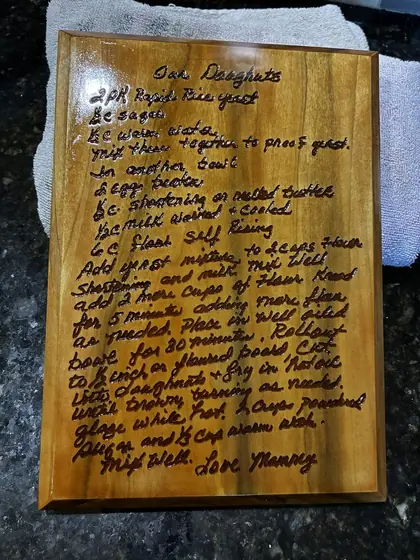 Our Doughnuts
2 PK Rapid Rise yeast
½ C sugar
½ C warm water
Mix these together to proof yeast.
In another bowl
2 eggs beaten
½ C. shortening or melted butter
½ C milk warmed + cooled
6 C. flour Self Rising
Add yeast mixture to 2 cups flour
shortening and milk. Mix Well
add 2 more cups of flour Knead
for 5 minutes adding more flour
as needed. Place in well oiled
bowl for 30 minutes. Rollout
to ½ inch on floured board. Cut
into doughnuts + fry in hot oil
until brown, turning as needed.
glaze while hot. 2 cups powdered
sugar and ⅓ cup warm
Mix Well. Love Mammy